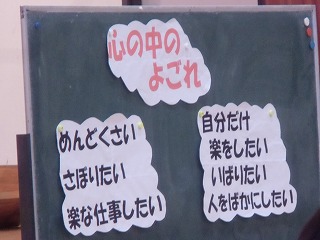 心の中の
よごれ
めんどくさい
さぼりたい
楽な仕事したい
自分だけ
楽をしたい
いばりたい
人をばかにしたい